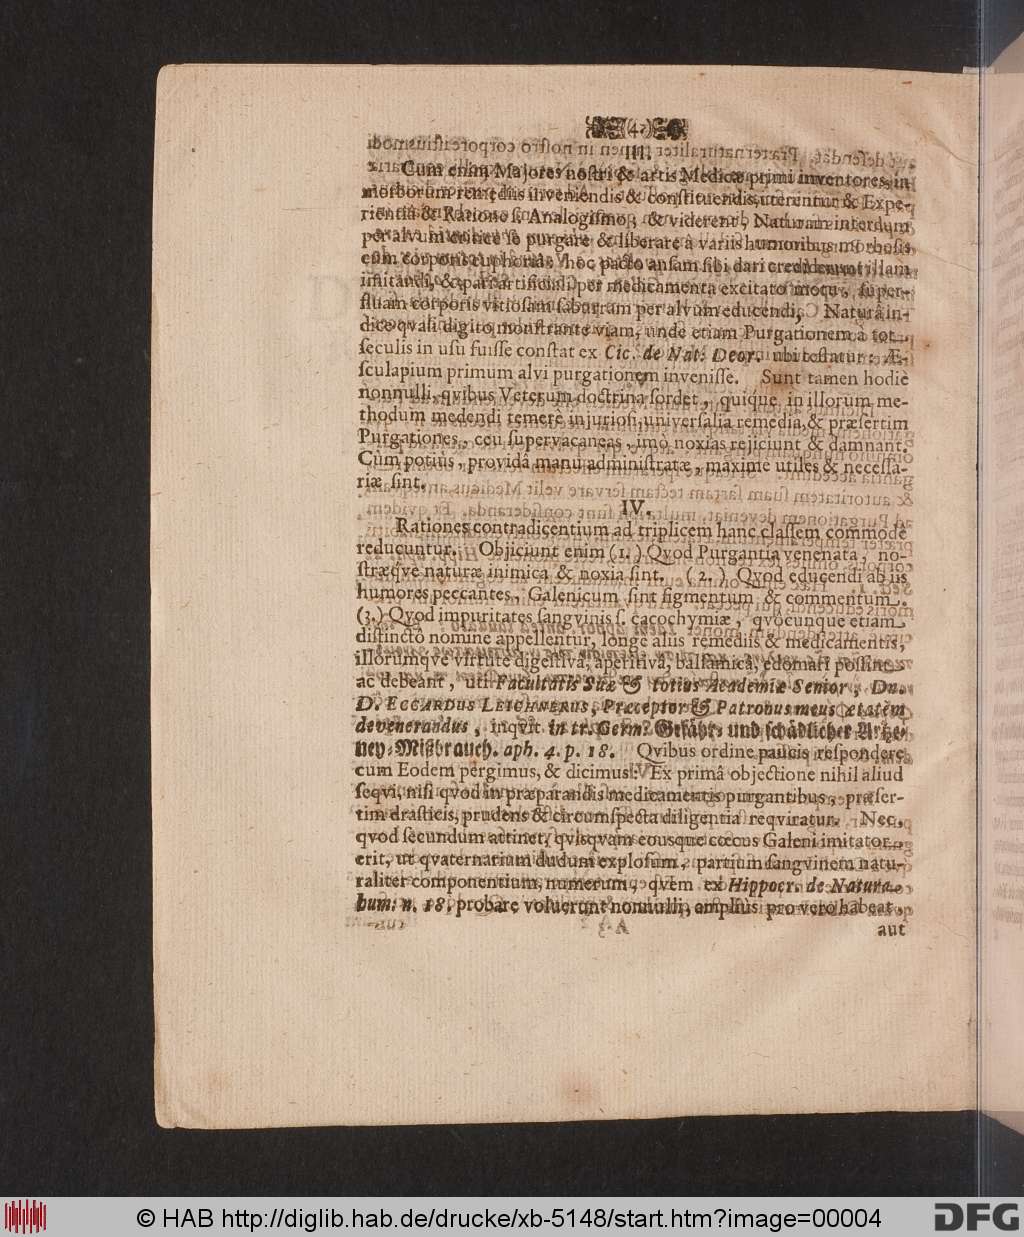 (4)
III.
Cum enim Majores nostri & artis Medicæ primi inventores, in
morborum remediis inveniendis & constituendis, uterentur & Expe-
rientiâ & Ratione s. Analogismo, & viderent, Naturam interdum
per alvum se purgare & liberare â variis humoribus morbosis
cum corporis euphoriâ, hoc pacto ansam sibi dari crediderunt illam
imitandi, & pari artificiali per medicamenta excitato motu, super-
fluam corporis vitiosam saburram per alvum educendi, Naturâ in-
dice qvasi digito monstrante viam, unde etiam Purgationem à tot
seculis in usu fuisse constat ex Cic. de Nat. Deor. ubi testatur: Æ-
sculapium primum alvi purgationem invenisse. Sunt tamen hodiè
nonnulli, qvibus Veterum doctrina sordet, quique in illorum me-
thodum medendi temerè injuriosi, universalia remedia, & præsertim
Purgationes, ceu supervacaneas, imò noxias rejiciunt & damnant.
Cùm potiùs, providâ manu administratæ, maximè utiles & necessa-
riæ sint.
IV.
Rationes contradicentium ad triplicem hanc classem commodè
reducuntur. Objiciunt enim (1.) Qvod Purgantia venenata, no-
stræq́ve naturæ inimica & noxia sint. (2.) Qvod educendi ab iis
humores peccantes, Galenicum sint figmentum & commentum.
(3.) Qvod impuritates sangvinis s. cacochymiæ, qvocunque etiam
distincto nomine appellentur, longè aliis remediis & medicamentis,
illorumqve virtute digestivâ, aperitivâ, balsamicâ, edomari possint
ac debeant, uti Facultatis Suæ & totius Academiæ Senior, Dn.
D. ECCARDUS LEICHNERUS, Præceptor & Patronus meus ætatèm
devenerandus, inqvit in tr. Germ. Gefähr- und schädlicher Artze-
ney-Mißbrauch. aph. 4. p. 18. Qvibus ordine paucis respondere
cum Eodem pergimus, & dicimus: Ex primâ objectione nihil aliud
seqvi, nisi qvod in præparandis medicamentis purgantibus, præser-
tim drasticis, prudens & circumspecta diligentia reqviratur. Nec,
qvod secundum attinet, qvisqvam eousque cœcus Galeni imitator
erit, ut qvaternarium dudum explosum, partium sangvinem natu-
raliter componentium, numerum, qvem ex Hippocr. de Natura
hum. n. 18. probare voluerunt nonnulli, ampliùs pro vero habeat,
aut
© HAB http://diglib.hab.de/drucke/xb-5148/start.htm?image=00004
DFG